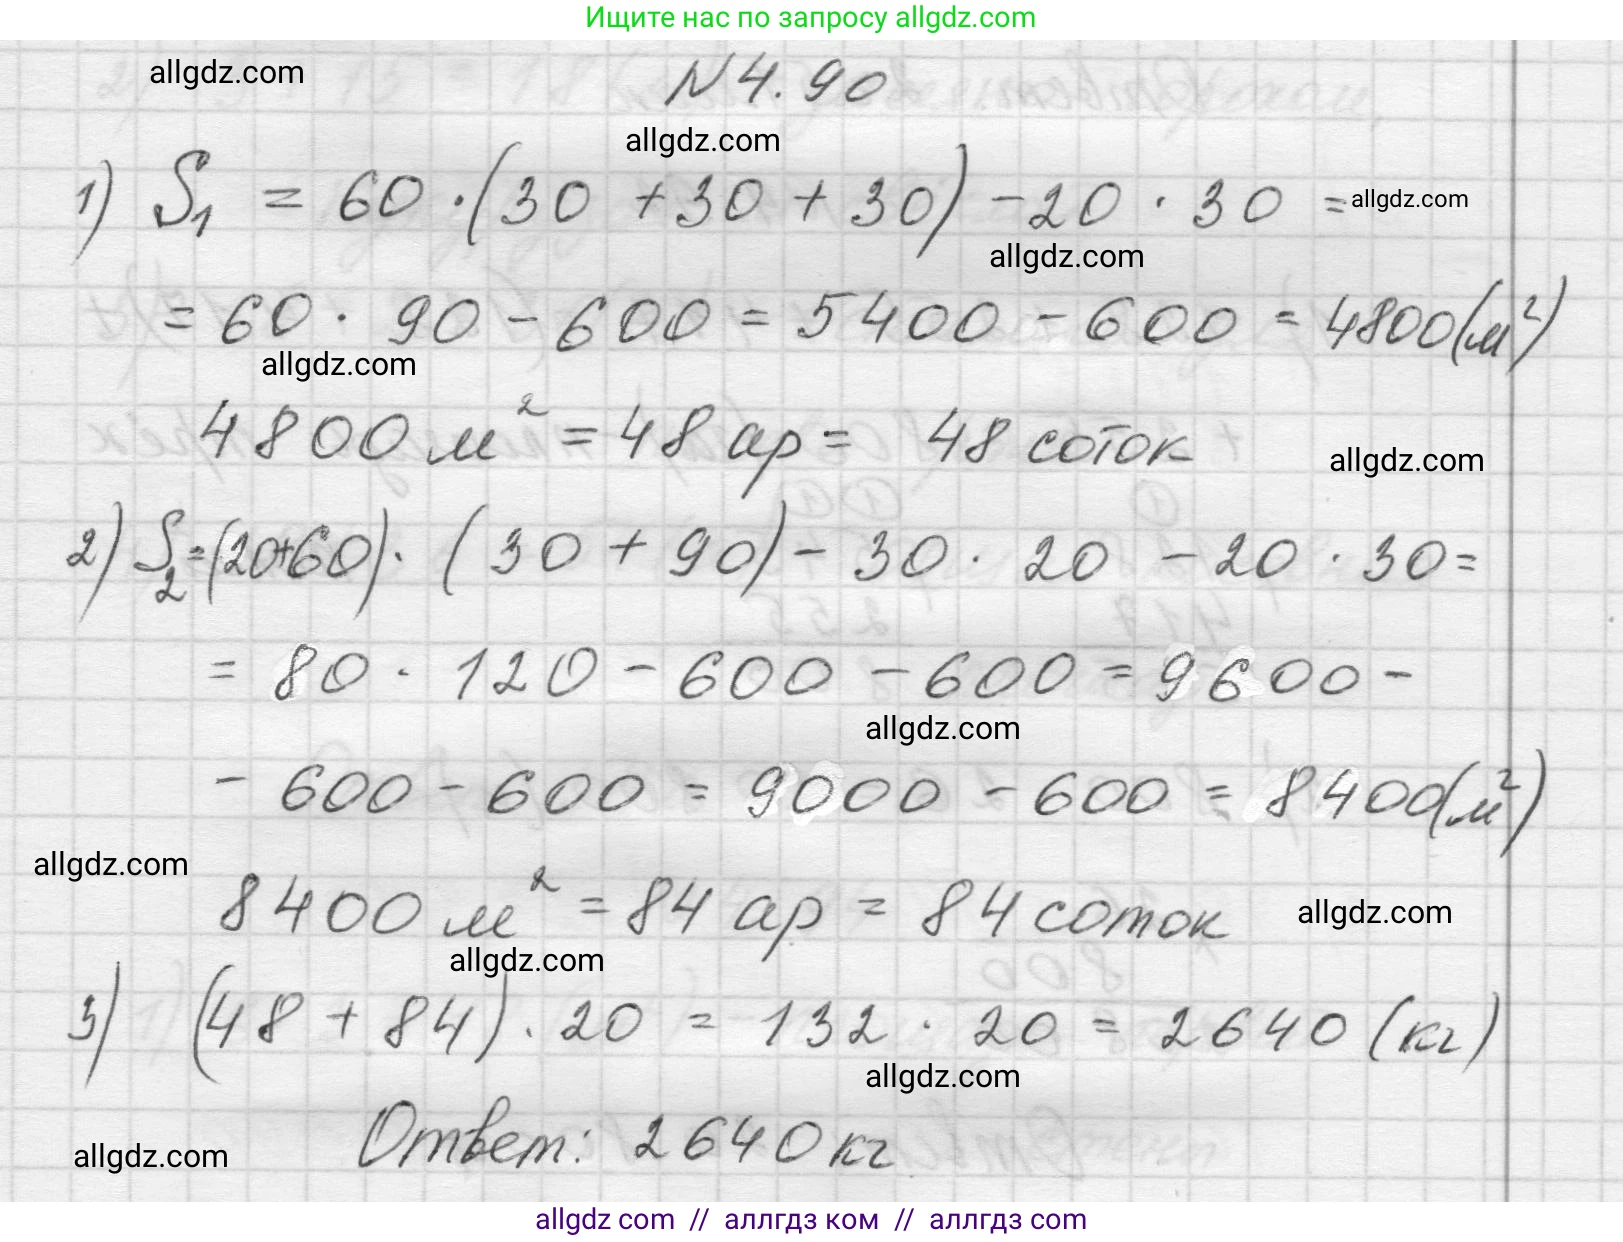 Ищите нас по запросу allgdz.com
allgdz.com
N 4.90
allgdz.com
1) S₁ = 60 · (30 + 30 + 30) - 20 · 30 =
allgdz.com
allgdz.com
= 60 · 90 - 600 = 5400 - 600 = 4800 (м²)
allgdz.com
4800 м² = 48 ар = 48 соток
allgdz.com
2) S₂ = (20+60) · (30 + 90) - 30 · 20 - 20 · 30 =
= 80 · 120 - 600 - 600 = 9600 -
allgdz.com
- 600 - 600 = 9000 - 600 = 8400 (м²)
allgdz.com
8400 м² = 84 ар = 84 соток
allgdz.com
allgdz.com
3) (48 + 84) · 20 = 132 · 20 = 2640 (кг)
allgdz.com
Ответ: 2640 кг
allgdz.com
allgdz com // аллгдз ком // аллгдз com